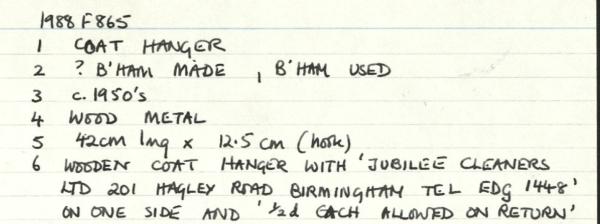 1988 F865
1 COAT HANGER
2 ? B'HAM MADE , B'HAM USED
3 c. 1950's
4 WOOD METAL
5 42cm lng x 12.5 cm (hook)
6 WOODEN COAT HANGER WITH 'JUBILEE CLEANERS
LTD 201 HAGLEY ROAD BIRMINGHAM TEL EDG 1448'
ON ONE SIDE AND '½d EACH ALLOWED ON RETURN'